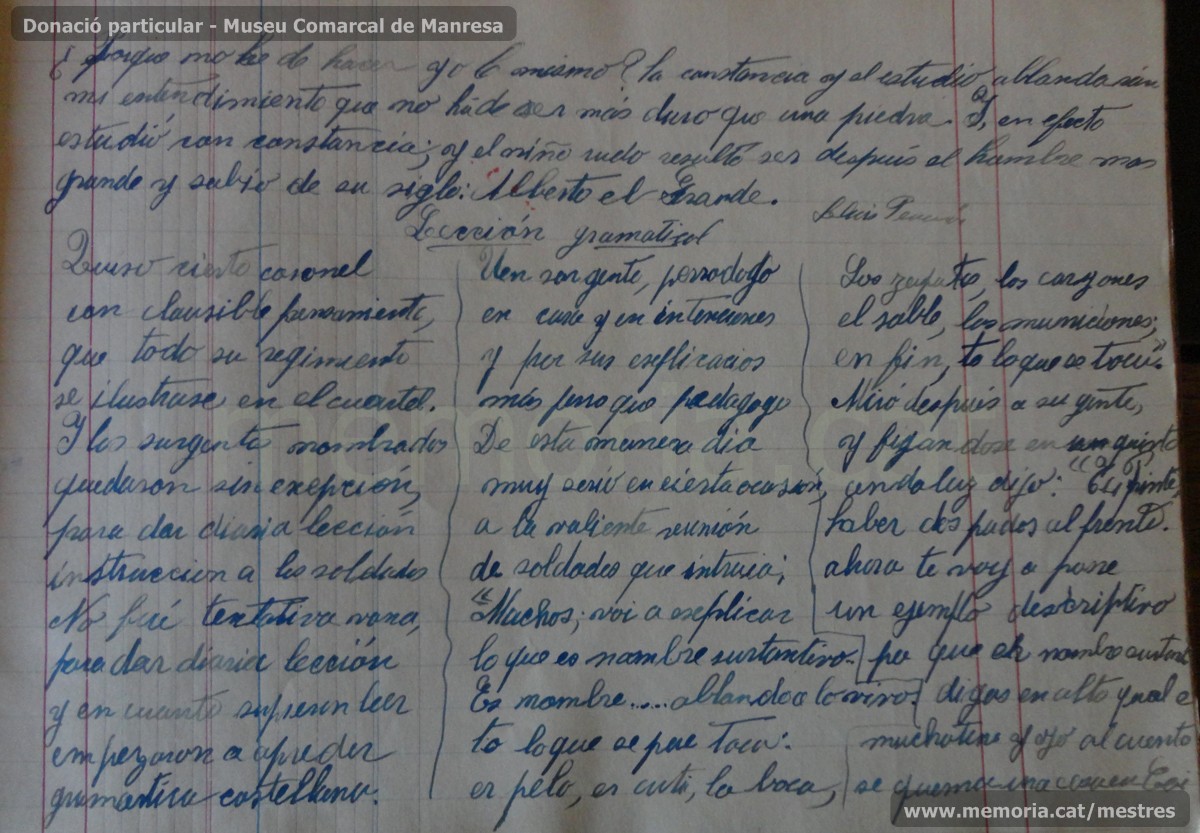 Donació particular - Museu Comarcal de Manresa
¿Porque no he de hacer yo lo mismo? la constancia y el estudio ablandarán
mi entendimiento que no há de ser más duro que una piedra. Y, en efecto
estudió con constancia; y el niño rudo resultó ser después el hombre mas
grande y sabio de su siglo: Alberto el Grande.
Lluis
Lección gramatical
Quiso cierto coronel
con plausible pensamiento,
que todo su regimiento
se ilustrase en el cuartel.
Y los surgento nombrados
quedaron sin exepción,
para dar diaria lección
instruccion a los soldados
No fué tentativa vana,
para dar diaria lección
y en cuanto supieron leer
empezaron a apreder
gramantica castellana.
Uen sargento,
en casa y en intenciones
y por sus explicacios
más fino que pedagogo
De esta manera dia
muy serio en ciesta ocasión,
a la valiente reunión
de soldados que intruia;
"Muchos; voi a explicar
lo que es nombre surtantivo.
Es nombre..... ablando a lo vivo.
to loque se pue toca:
er pelo, er cuti, la boca,
Los zapatos, los carzones
el sable, los municiones;
en fin, to loque se toca".
Miró después a su gente,
y fijandose en un quinto
andaluz dijo:
haber dos pados al frente.
ahora te voy a pone
un ejemplo descriptivo
pa que er nombre
digas en alto
muchotine y ojo al cuento
se quema una
www.memoria.cat/mestres